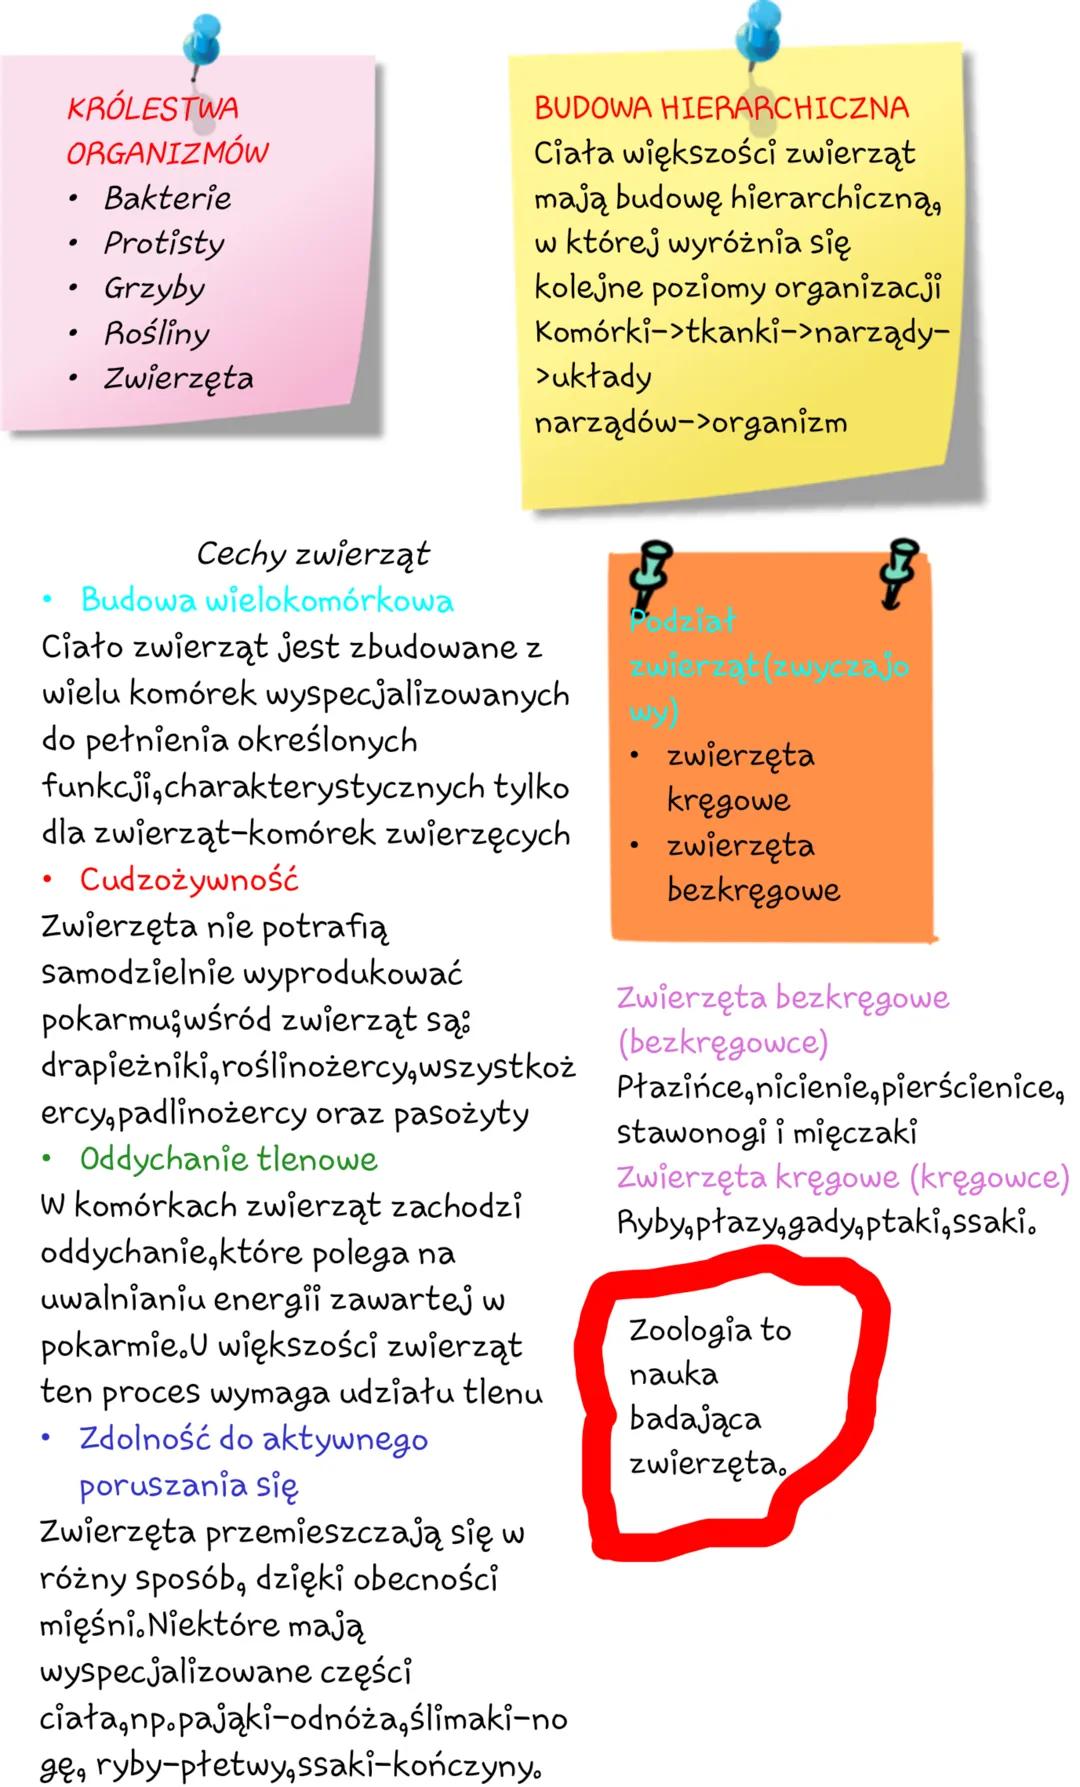 KRÓLESTWA
ORGANIZMÓW
• Bakterie
• Protisty
• Grzyby
• Rośliny
• Zwierzęta
BUDOWA HIERARCHICZNA
Ciała większości zwierząt
mają budowę hierarchiczną,
w której wyróżnia się
kolejne poziomy organizacji
Komórki->tkanki->narządy-
>układy
narządów->organizm
Cechy zwierząt
• Budowa wielokomórkowa
Ciało zwierząt jest zbudowane z
wielu komórek wyspecjalizowanych
do pełnienia określonych
funkcji,charakterystycznych tylko
dla zwierząt-komórek zwierzęcych
• Cudzożywność
Zwierzęta nie potrafią
samodzielnie wyprodukować
pokarmu;wśród zwierząt są:
drapieżniki,roślinożercy,wszystkoż
ercy,padlinożercy oraz pasożyty
• Oddychanie tlenowe
W komórkach zwierząt zachodzi
oddychanie,które polega na
uwalnianiu energii zawartej w
pokarmie.U większości zwierząt
ten proces wymaga udziału tlenu
• Zdolność do aktywnego
poruszania się
Zwierzęta przemieszczają się w
różny sposób, dzięki obecności
mięśni.Niektóre mają
wyspecjalizowane części
ciała,np.pająki-odnóża,ślimaki-no
gę, ryby-płetwy,ssaki-kończyny.
Podział
zwierząt(zwyczajo
wy)
• zwierzęta
kręgowe
• zwierzęta
bezkręgowe
Zwierzęta bezkręgowe
(bezkręgowce)
Płazińce,nicienie,pierścienice,
stawonogi i mięczaki
Zwierzęta kręgowe (kręgowce)
Ryby,płazy,gady,ptaki,ssaki.
Zoologia to
nauka
badająca
zwierzęta.